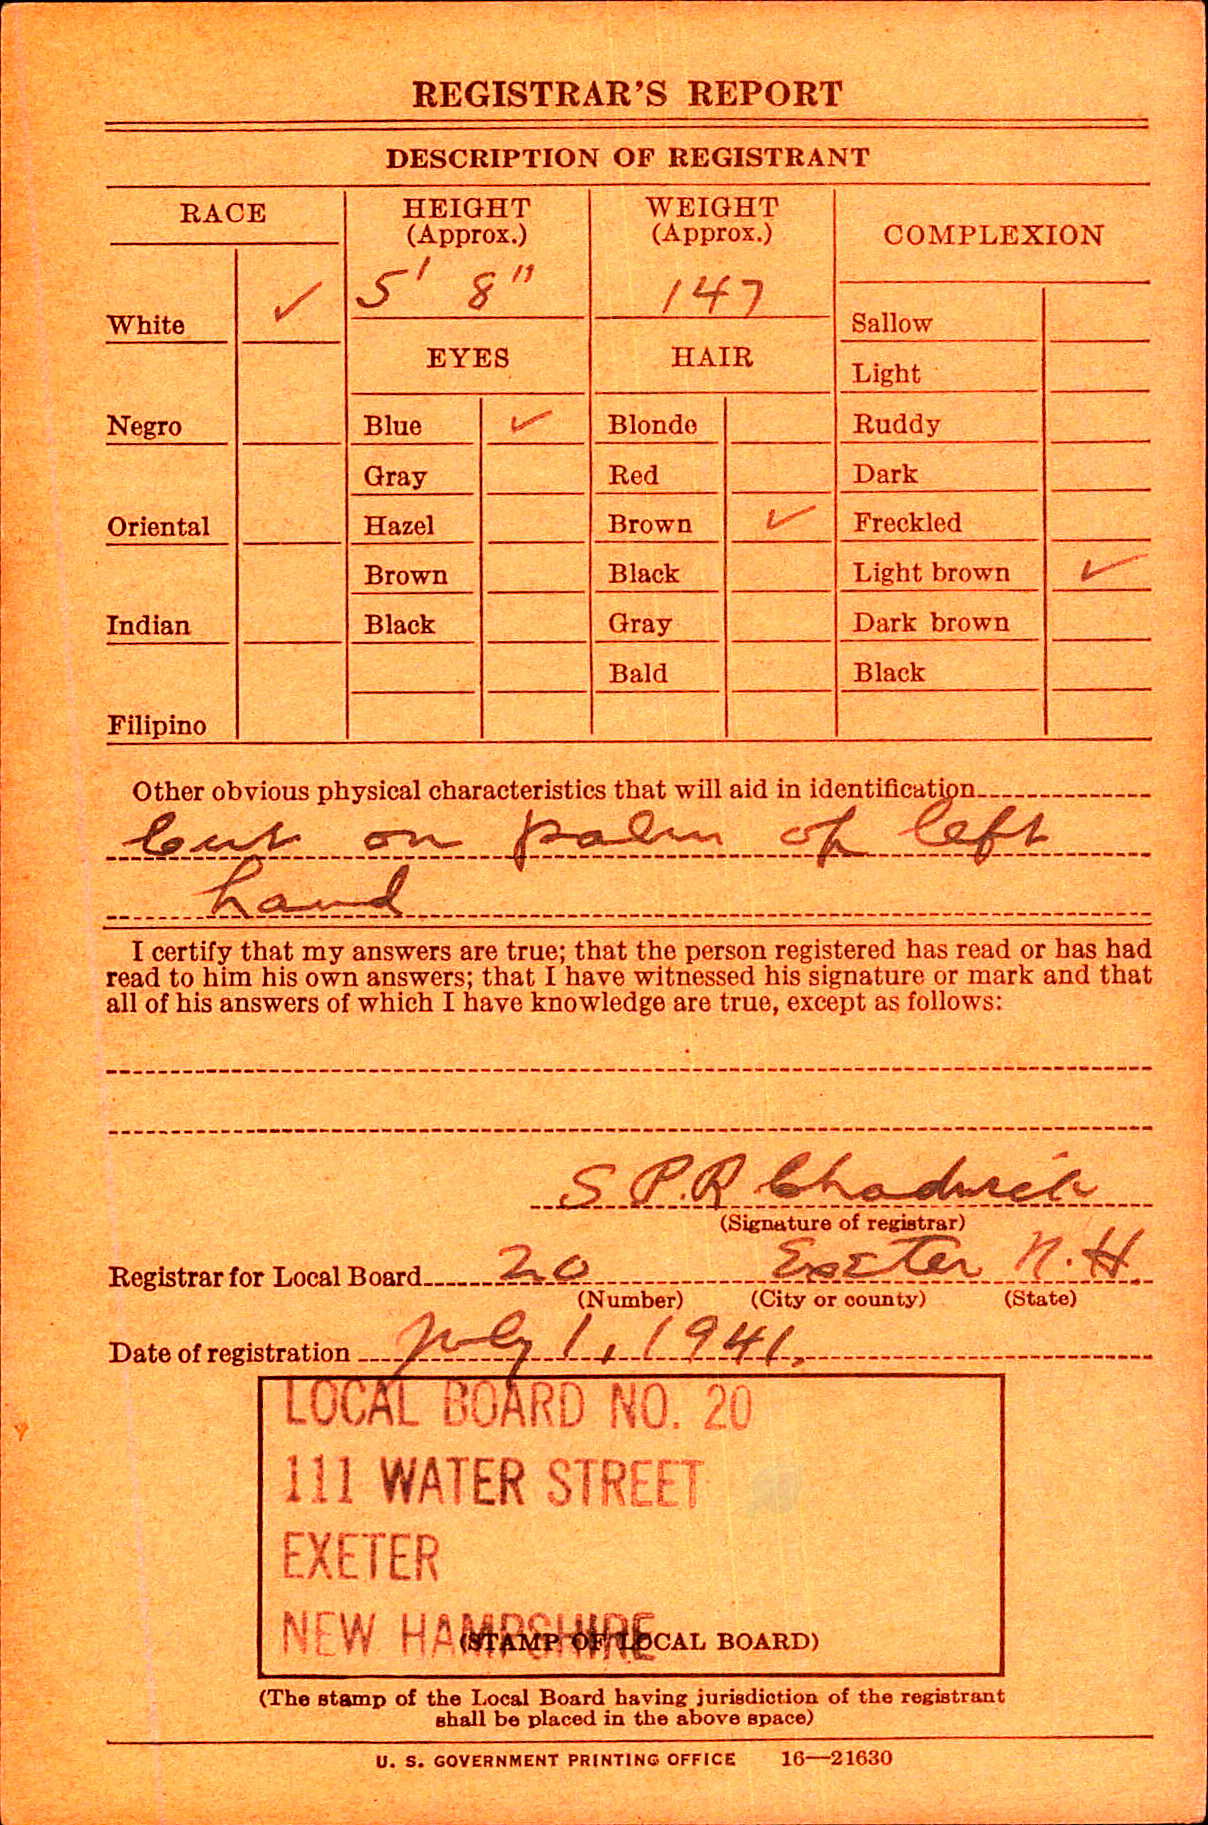 REGISTRAR'S REPORT
DESCRIPTION OF REGISTRANT
RACE
HEIGHT
(Approx.)
WEIGHT
(Approx.)
COMPLEXION
5' 8"
147
White ✓
Sallow
EYES
HAIR
Light
Negro
Blue ✓
Blonde
Ruddy
Gray
Red
Dark
Oriental
Hazel
Brown ✓
Freckled
Brown
Black
Light brown ✓
Indian
Black
Gray
Dark brown
Bald
Black
Filipino
Other obvious physical characteristics that will aid in identification
Cut on palm of left
hand
I certify that my answers are true; that the person registered has read or has had
read to him his own answers; that I have witnessed his signature or mark and that
all of his answers of which I have knowledge are true, except as follows:
S P.R Chadwick
(Signature of registrar)
Registrar for Local Board 20 Exeter N.H.
(Number) (City or county) (State)
Date of registration July 1, 1941.
LOCAL BOARD NO. 20
111 WATER STREET
EXETER
NEW HAMPSHIRE
(STAMP OF LOCAL BOARD)
(The stamp of the Local Board having jurisdiction of the registrant
shall be placed in the above space)
U. S. GOVERNMENT PRINTING OFFICE 16—21630